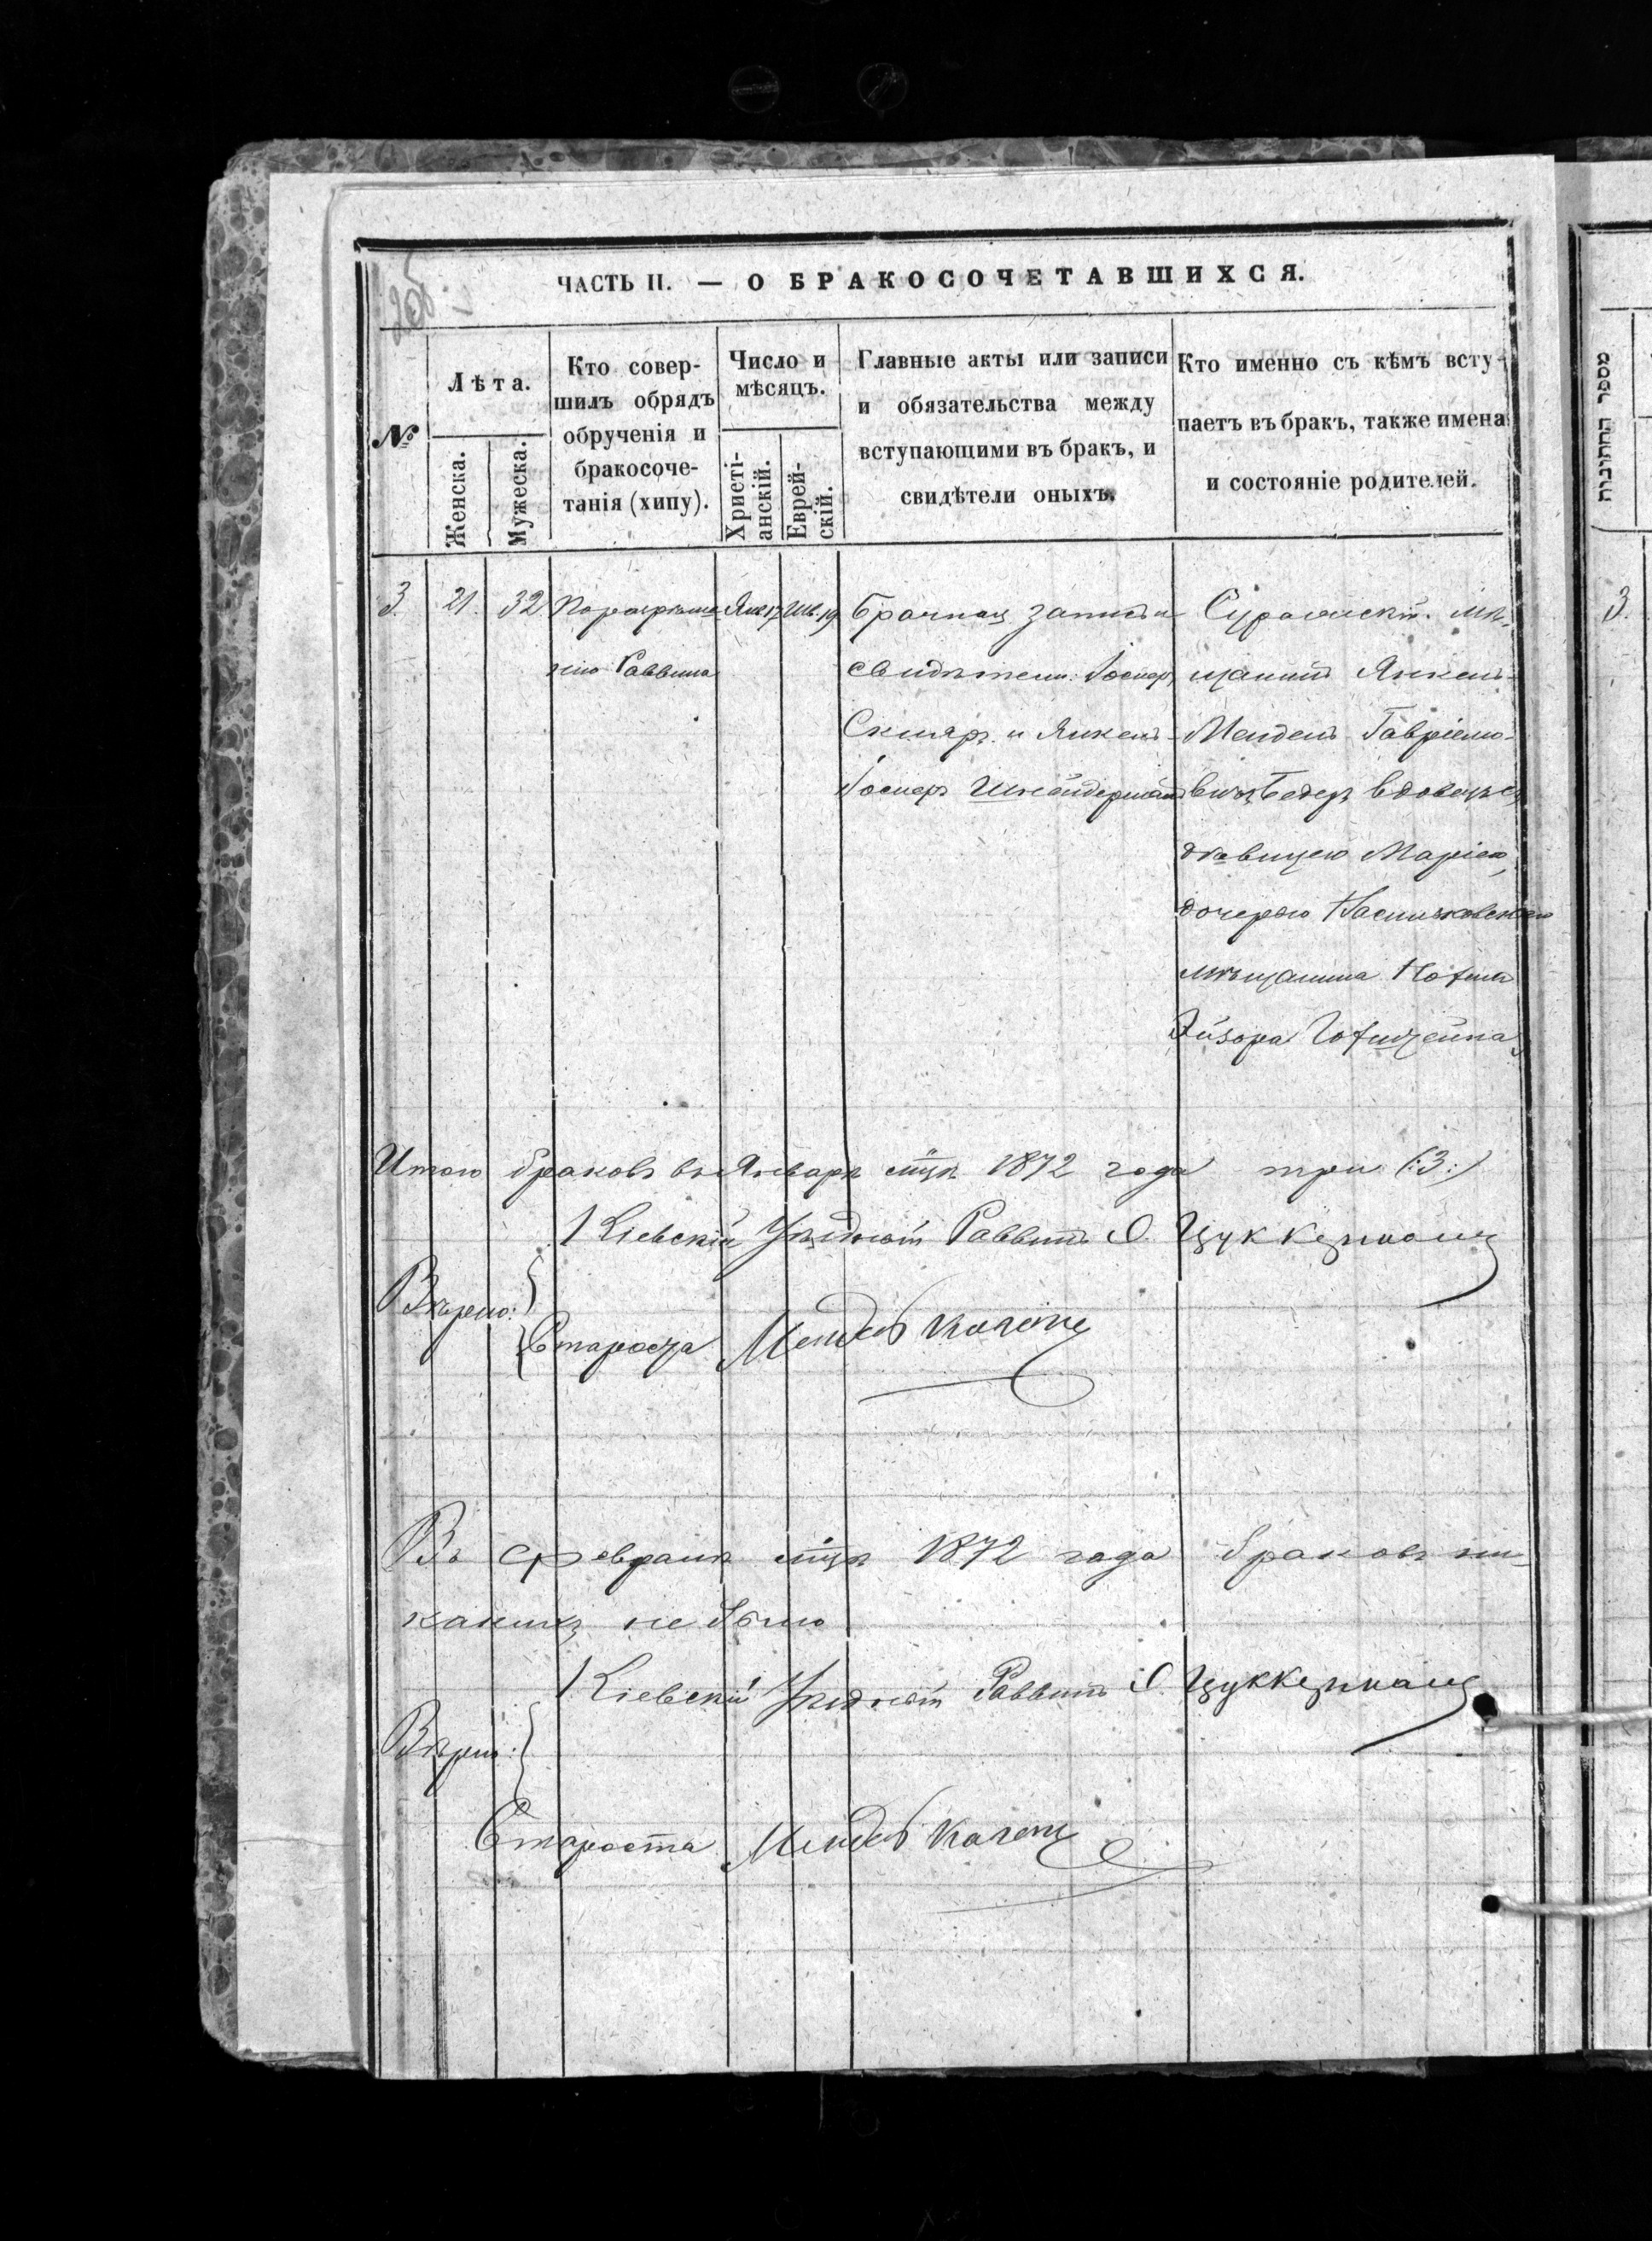 ЧАСТЬ II. — О БРАКОСОЧЕТАВШИХСЯ.
№
Лѣта.
Женска.
Мужеска.
Кто совер-
шилъ обрядъ
обрученія и
бракосоче-
танія (хипу).
Число и
мѣсяцъ.
Христі-
анскій.
Еврей-
скій.
Главные акты или записи
и обязательства между
вступающими въ бракъ, и
свидѣтели оныхъ.
Кто именно съ кѣмъ всту-
паетъ въ бракъ, также имена
и состояніе родителей.
מספר החתונות
3.
21.
32
По порученію
Раввина
Янв. 17
Шв. 19
Брачная запись и
свидѣтели: Іосифъ
Скляръ и Янкель-
Іосифъ Шнайдерманъ
Суражскій мѣ-
щанинъ Янкель-
Мендель Гавріело-
вичъ вдовецъ съ
дѣвицею Маріею,
дочерью
мѣщанина
3.
Итого браковъ въ Январѣ м-цѣ 1872 года три (:3:)
Кіевскій Уѣздный Раввинъ О. Цуккерманъ
Вѣрно:
Староста Мендель
Въ Февралѣ м-цѣ 1872 года браковъ ни-
какихъ не было
Кіевскій Уѣздный Раввинъ О. Цуккерманъ
Вѣрно:
Староста Мендель